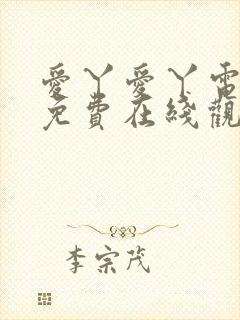 愛丫愛丫電
免費在綫觀
李宗茂